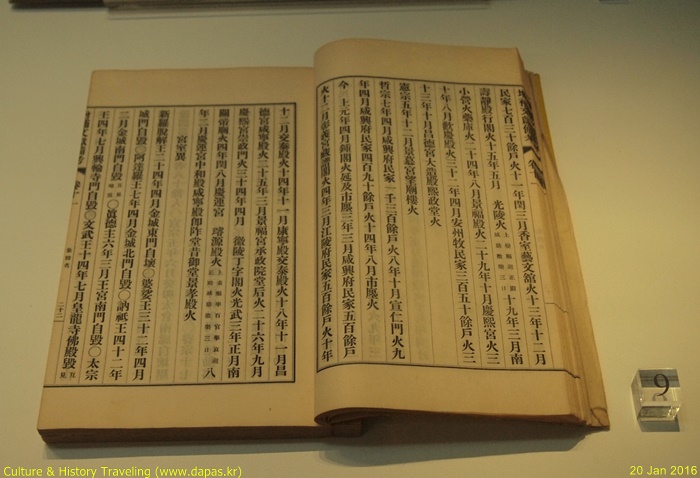 增補文獻備考 卷十一
民家七百三十餘戶火十一年閏三月香室藝文館火十三年十二月
壽靜殿行閣火十五年五月 光陵火 十九年三月南
小營火藥庫火二十四年八月景福殿火二十九年十月慶熙宮火三
十年八月歡慶殿火三十二年四月安州牧民家三百五十餘戶火三
十三年十月昌德宮大造殿熙政堂火
憲宗五年十二月景慕宮望廟樓火
哲宗七年四月咸興府民家四百九十餘戶火八年十月宣仁門火九
年四月咸興府民家一千三百餘戶火十四年八月市廛火
今上元年四月鍾閣火延及市廛三年三月咸興府民家五百餘戶
火十二月彰義宮藏譜閣火四年三月江陵府民家五百餘戶火十年
十二月交泰殿火十四年十一月康寧殿交泰殿火十八年十一月昌
德宮咸寧殿火二十五年三月景福宮承政院堂后火二十六年九月
慶熙宮崇政門火三十四年四月 徽陵丁字閣火光武三年正月南
關帝廟火四年閏八月慶運宮 璿源殿火 八
年二月慶運宮中和殿咸寧殿卽阼堂昔御堂景孝殿火
宮室異
新羅脫解王二十四年四月金城東門自壞○婆娑王三十二年四月
城門自毁○阿達羅王七年四月金城北門自毁○訥祗王四十二年
二月金城南門自毁○眞德王六年三月王宮南門自毁○太宗
王四年七月興輪寺門自毁○文武王十四年七月皇龍寺佛殿毁
增補文獻備考 卷十一
9
Culture & History Traveling (www.dapas.kr)
20 Jan 2016